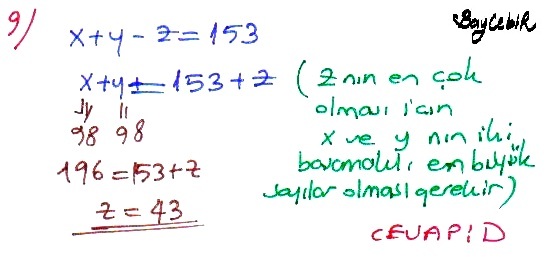 9/
BayCebiR
x+y-z=153
x+y=153+z (z nın en çok
olması için
x ve y nın iki
basamaklı en büyük
sayılar olması gerekir)
98 98
196=153+z
z=43
CEVAP:D